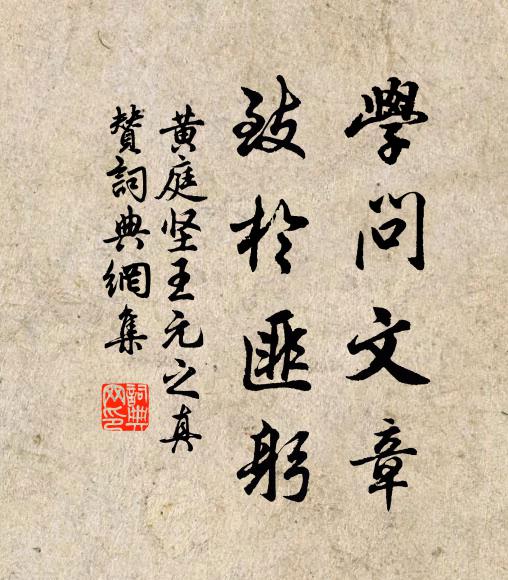 學問文章
致於匪躬
黄庭坚王元之真
贊詞典網集
詞典
网印